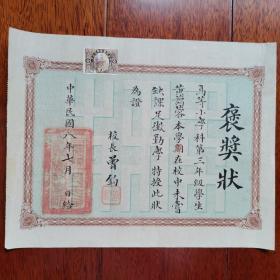 褒獎狀
高等小學科第三年級學生
本學期在校中未嘗
缺課足徵勤學特授此狀
為證
校長 曹鈞
中華民國八年七月 日給